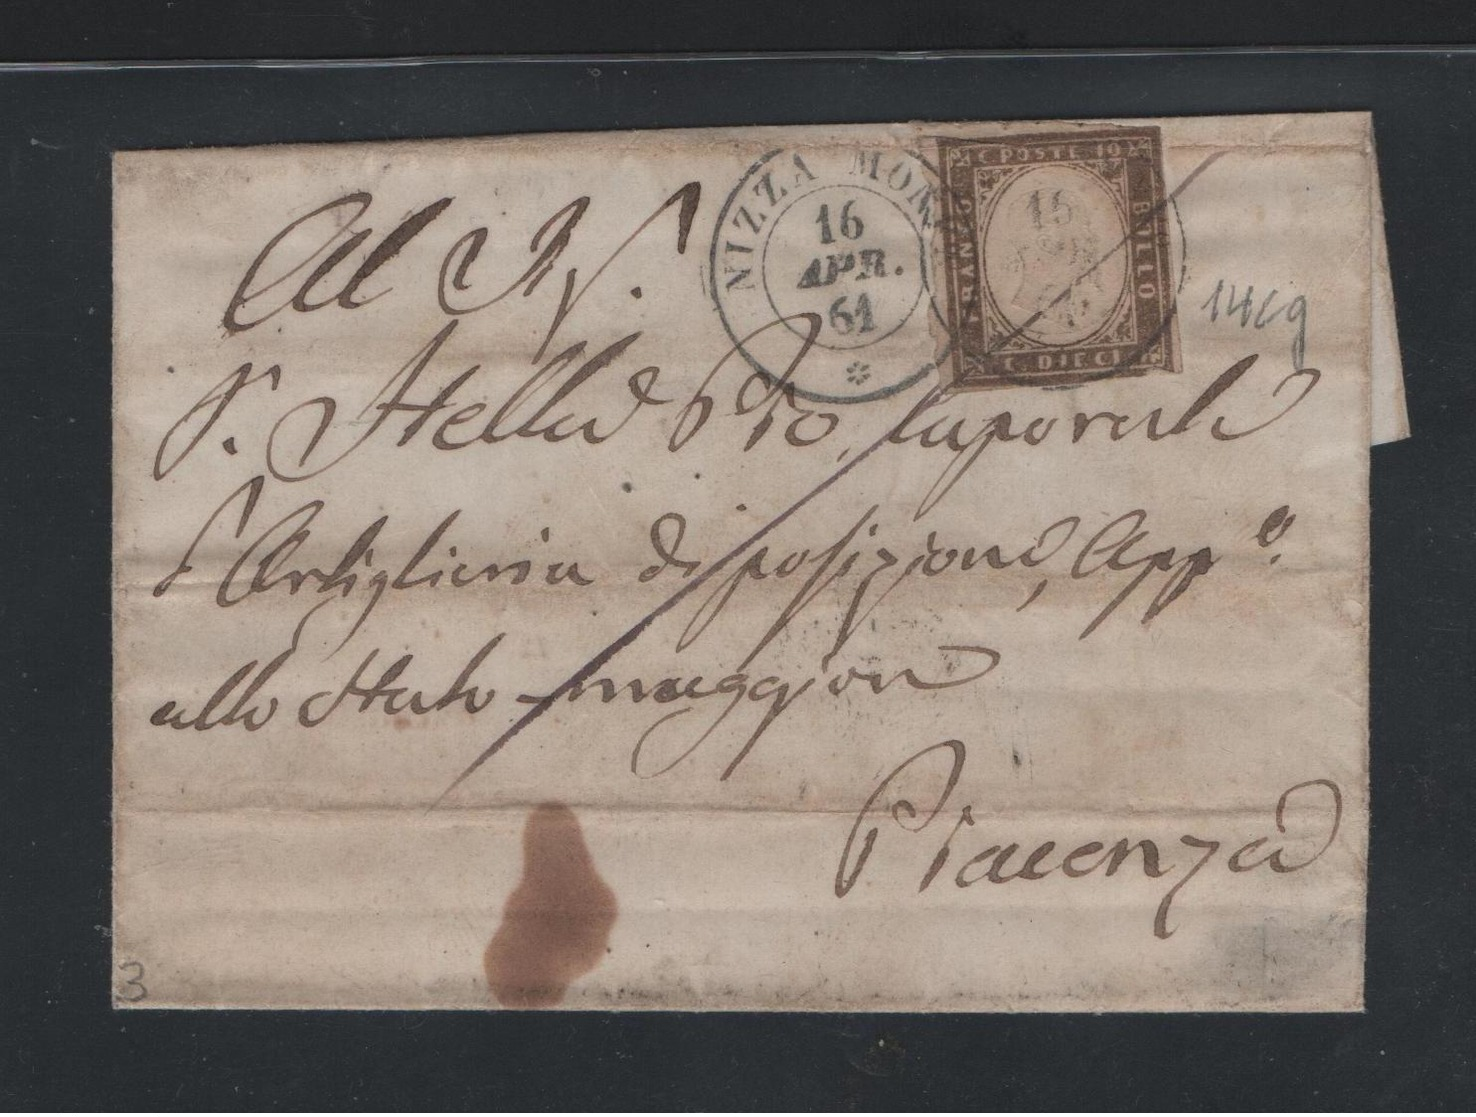 C POSTE 10
FRANCO
BOLLO
C. DIECI
NIZZA MON
16
APR.
61
14Cg
Al Sig.
S. Stella Pio, Caporale
d'Artiglieria di posizione, App.o
allo Stato-maggiore
Piacenza
3